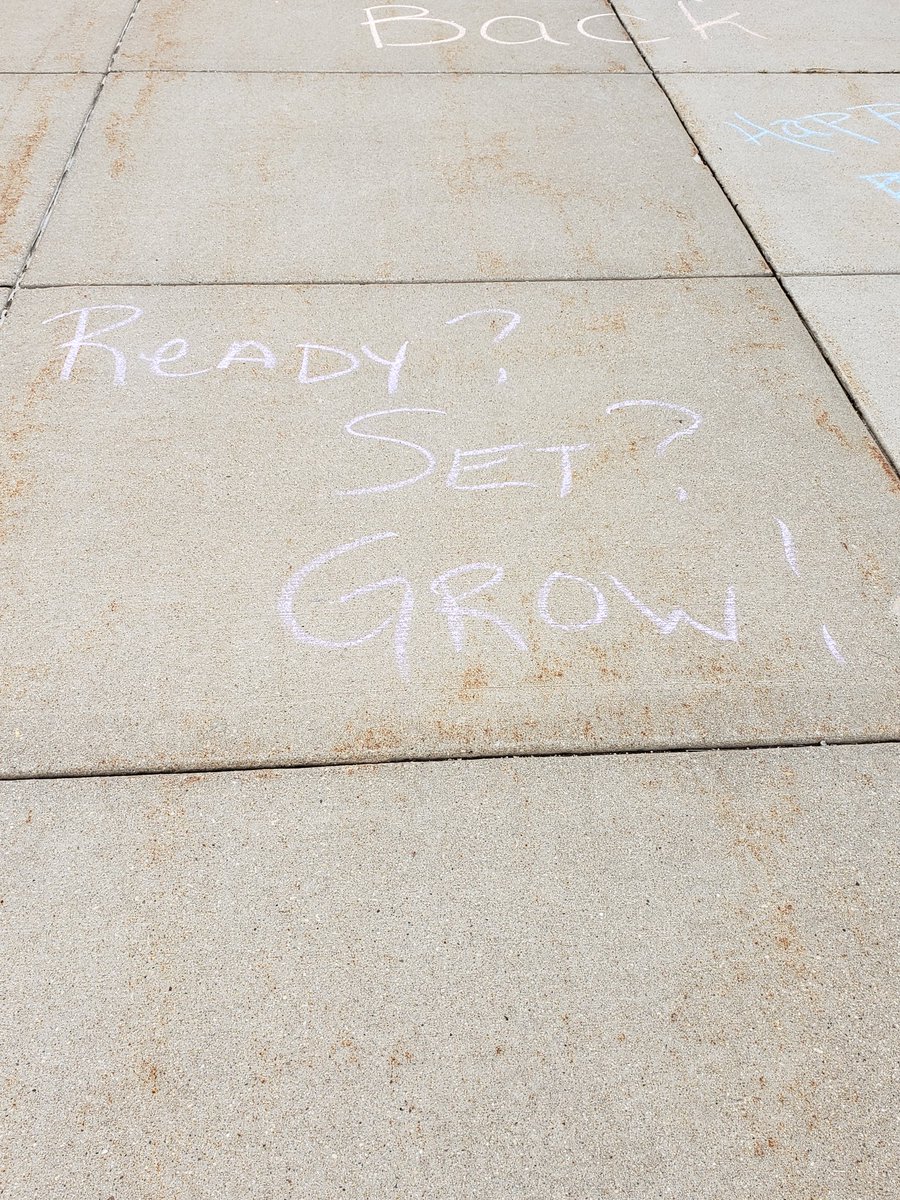 Back
Happ
Ready?
Set?
Grow!